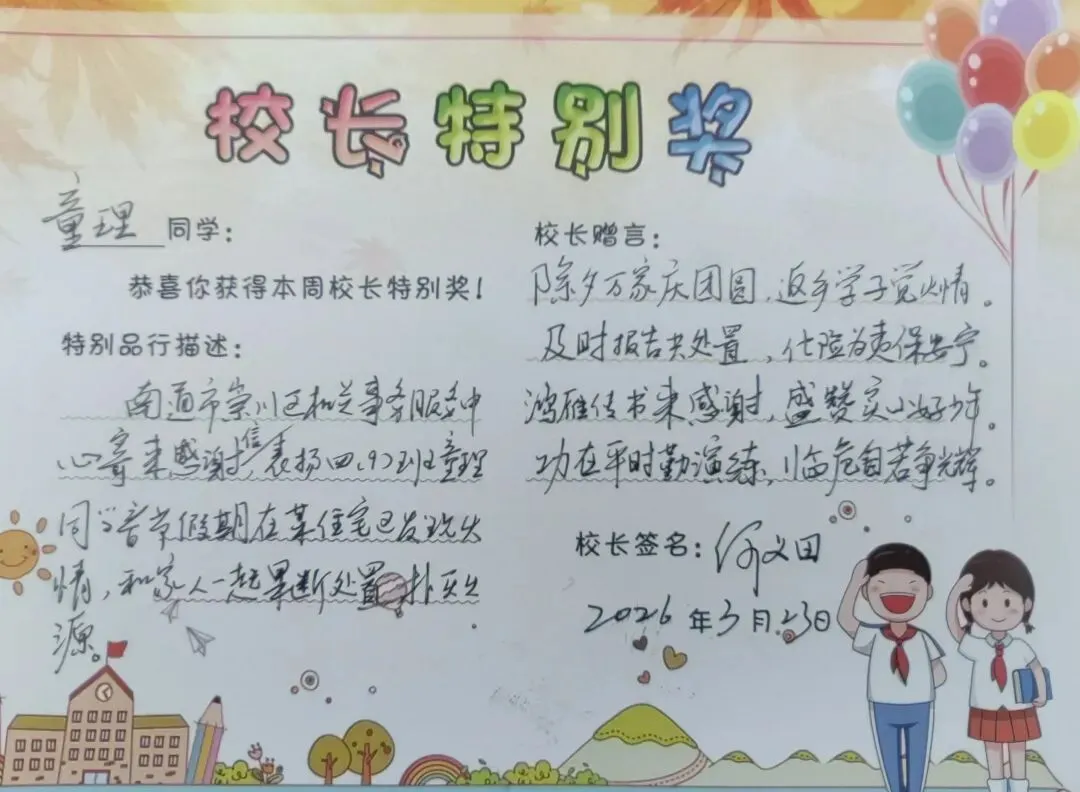 校长特别奖
童理 同学：
恭喜你获得本周校长特别奖！
特别品行描述：
南通市崇川区机关事务服务中
心寄来感谢信表扬四（9）班童理
同学春节假期在某住宅区发现火
情，和家人一起果断处置，扑灭火
源。
校长赠言：
除夕万家庆团圆，返乡学子觉火情。
及时报告共处置，化险为夷保安宁。
鸿雁传书来感谢，盛赞实小好少年。
功在平时勤演练，临危自若争光辉。
校长签名：
2026年3月23日